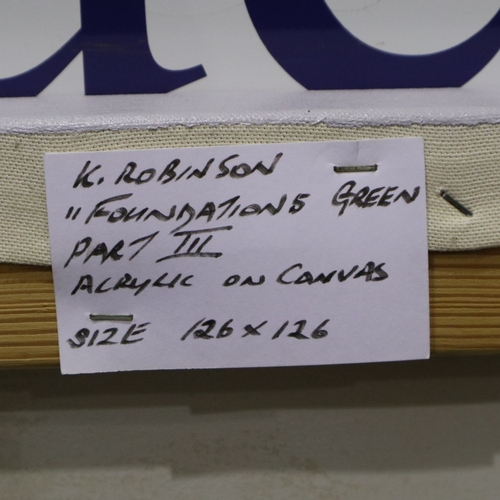 K. ROBINSON
"FOUNDATIONS GREEN
PART III
ACRYLIC ON CANVAS
SIZE 126 x 126